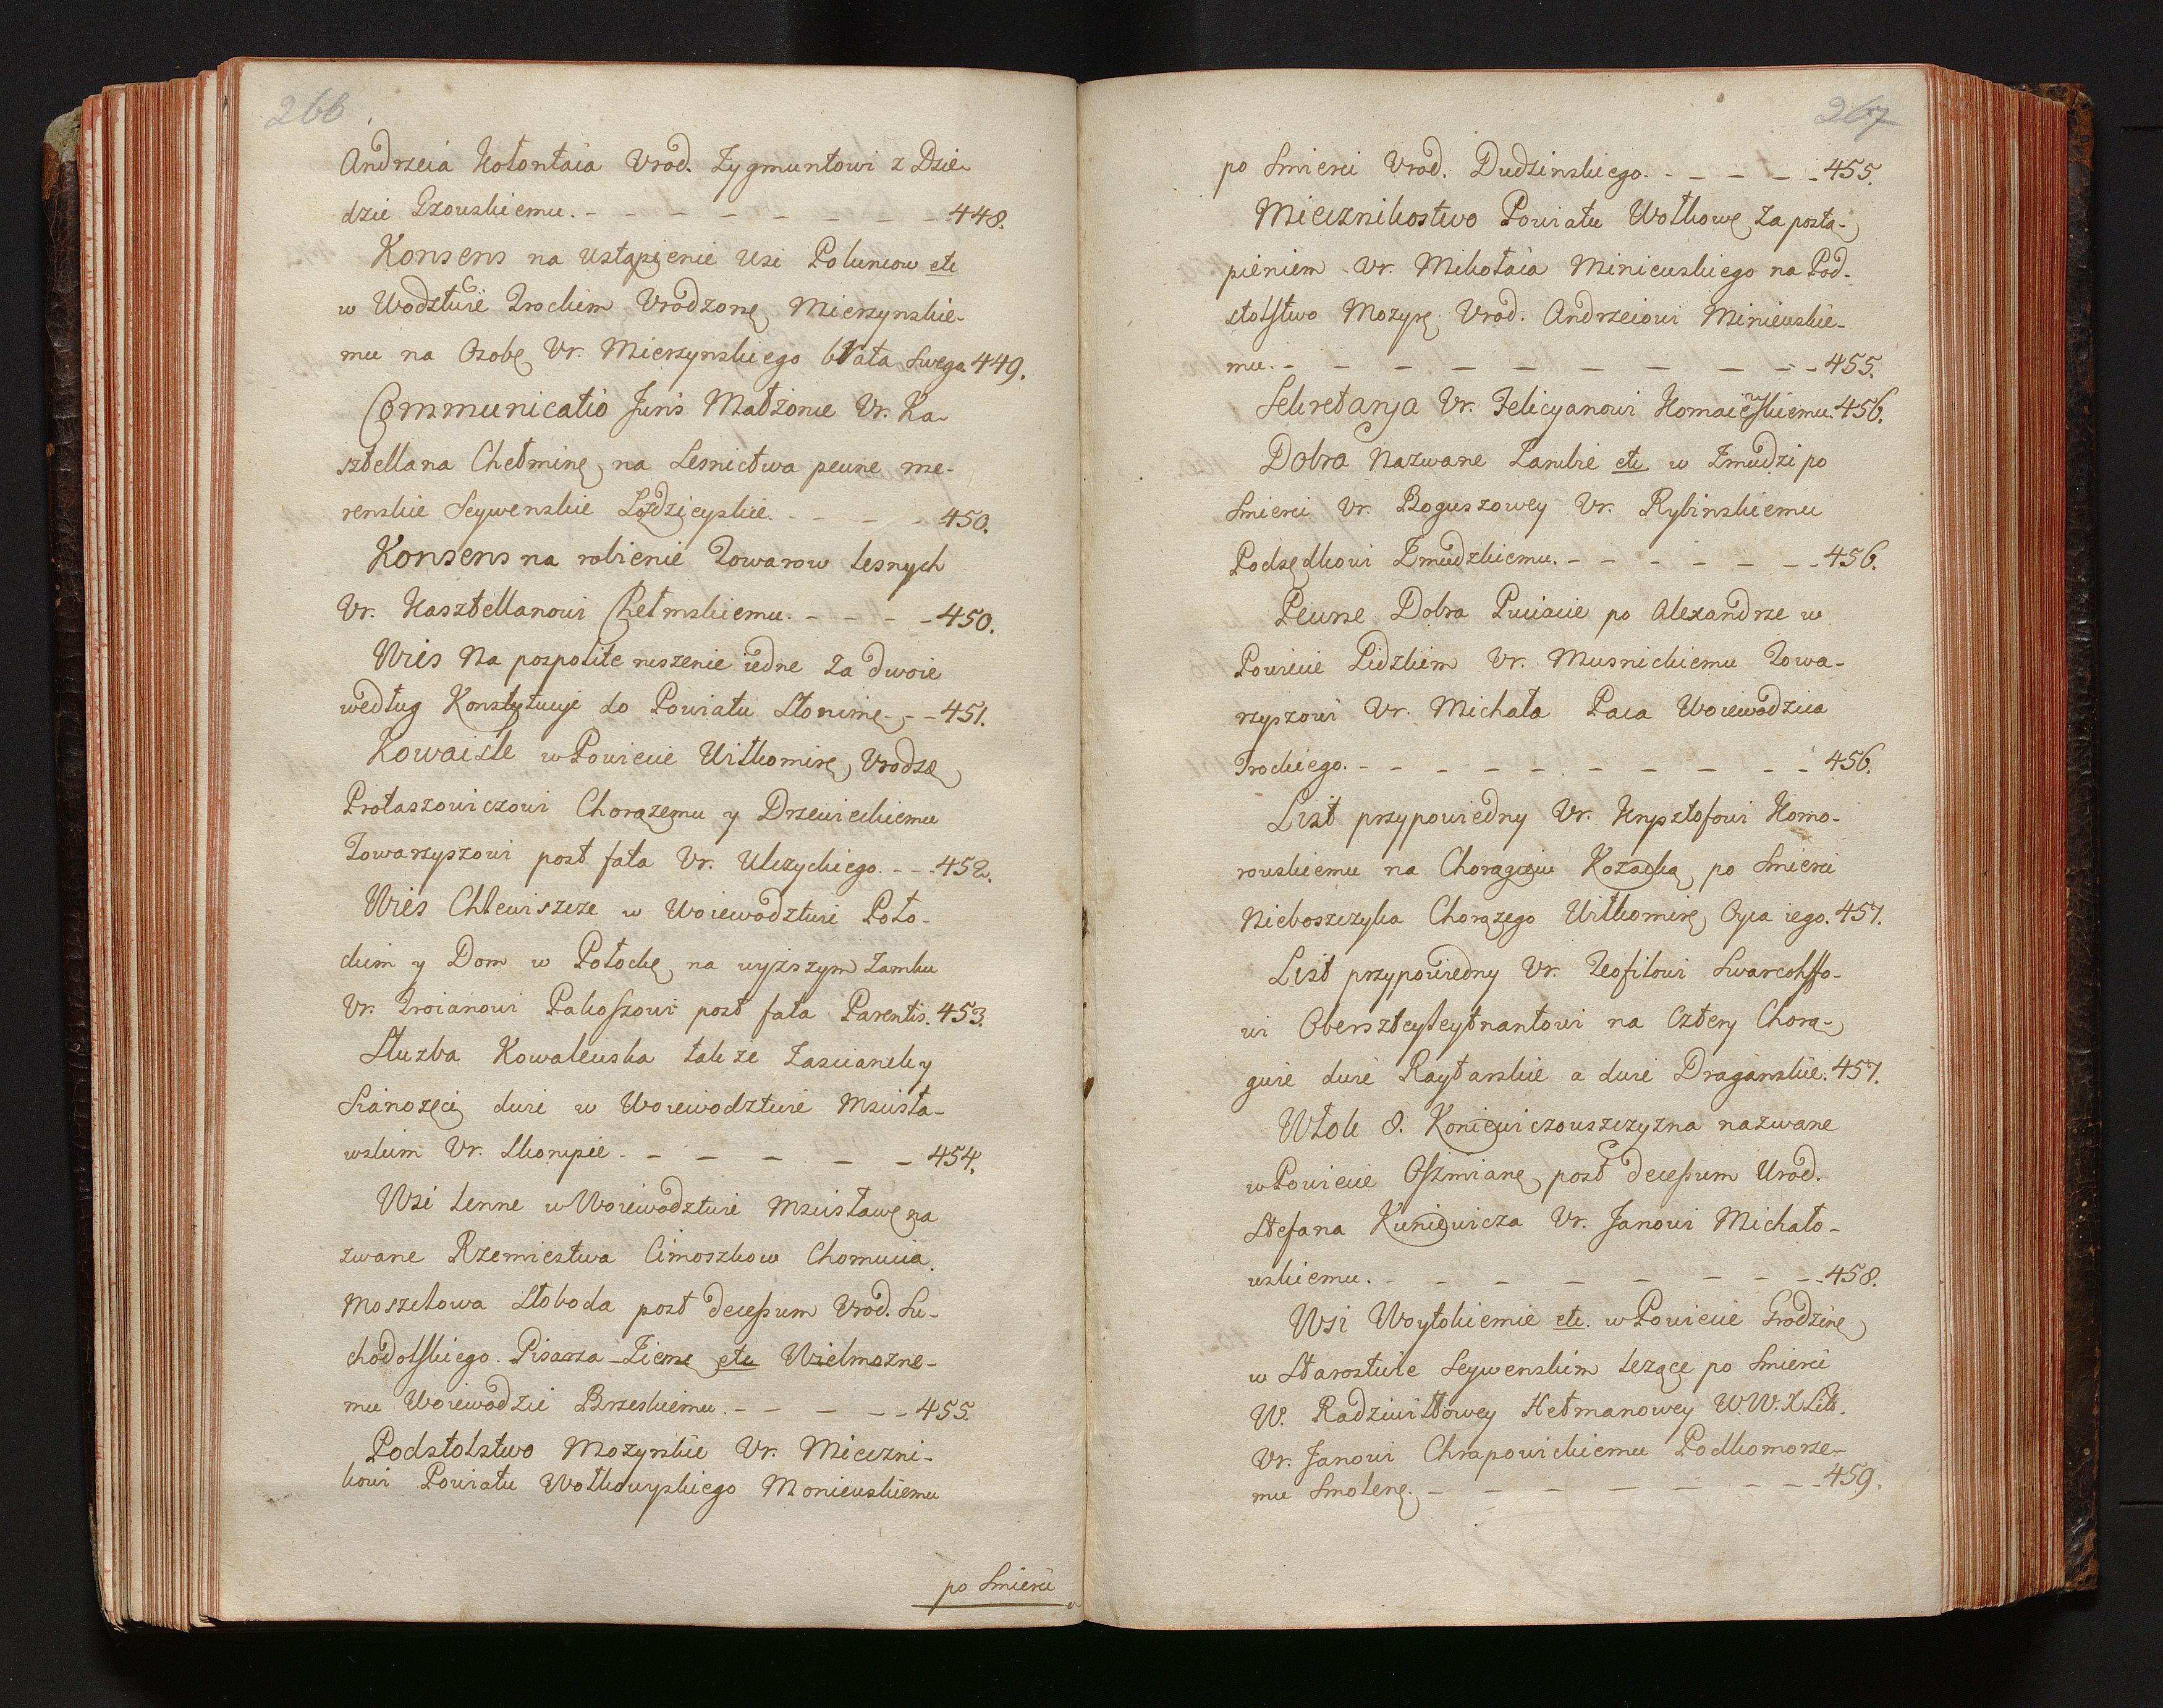 266
Andrzeia Kołontaia Urod. Zygmuntowi z Dzie-
dzic Gzowskiemu. - - - - - - - 448.
Konsens na ustąpienie Wsi Poluncow etc
w Wodztwie Trockim Urodzonę Mierzynskie-
mu na Osobę Ur. Mierzynskiego brata Swego 449.
Communicatio Juris Małżonce Ur. Ka-
sztellana Chełminę na Lesnictwa pewne me-
renskie Seywenskie Łozdzieyskie. - - - - 450.
Konsens na robienie Towarow Lesnych
Ur. Kasztellanowi Chełmskiemu. - - - - 450.
Wies Na pospolite ruszenie iedne Za dwoie
według Konstytucyi do Powiatu Słonimę - - 451.
Kowaisle w Powiecie Wiłkomirę Urodzę
Protaszowiczowi Chorązemu y Drzewieckiemu
Towarzyszowi post fata Ur. Ulczyckiego. - - - 452.
Wies Chlewiszcze w Woiewodztwie Poło-
ckim y Dom w Połockę na wyższym Zamku
Ur. Troianowi Pakoszowi post fata Parentis. 453.
Służba Kowalewska także Zascianek y
Sianożęci dwie w Woiewodztwie Mscisła-
wskim Ur. Skompie - - - - - - 454.
Wsi lenne w Woiewodztwie Mscisławę na
zwane Rzemiestwa Cimoszkow Chomucia.
Moszckowa Słoboda post decessum Urod. Su-
chodolskiego. Pisarza Ziems etc Wielmożne-
mu Woiewodzie Brzeskiemu. - - - - - 455.
Podstolstwo Mozyrskie Ur. Mieczni-
kowi Powiatu Wołkowyskiego Moniewskiemu
po Smierci
267
po Smierci Urod. Dudzinskiego. - - - - - 455.
Miecznikostwo Powiatu Wołkowę Za postą-
pieniem Ur. Mikołaia Miniewskiego na Pod-
stolstwo Mozyrę Urod. Andrzeiowi Miniewskie-
mu. - - - - - - - - - - 455.
Sekretarya Ur. Felicyanowi Komaiewskiemu. 456.
Dobra Nazwane Zambie etc. w Zmudzi po
Smierci Ur. Boguszowey Ur. Rybinskiemu
Podsędkowi Zmudzkiemu. - - - - - - - 456.
Pewne Dobra Puciacie po Alexandrze w
Powiecie Lidzkim Ur. Musnickiemu Towa-
rzyszowi Ur. Michała Paca Woiewodzica
Trockiego. - - - - - - - - - - 456.
List przypowiedny Ur. Krysztofowi Komo-
rowskiemu na Chorągiew Kozacką po Smierci
Nieboszczyka Chorązego Wiłkomirę Oyca iego. 457.
List przypowiedny Ur. Teofilowi Swarcohffo-
wi Obersztleytnantowi na Cztery Chorą-
gwie dwie Raytarskie a dwie Draganskie. 457.
Włok 8. Koniewiczowszczyzna nazwane
w Powiecie Oszmianę post decessum Urod.
Stefana Kuniewicza Ur. Janowi Michało-
wskiemu. - - - - - - - - - 458.
Wsi Woytokiemie etc. w Powiecie Grodzinę
w Starostwie Seywenskim leżące po Smierci
W. Radziwiłłowey Hetmanowey W. W. X Litt.
Ur. Janowi Chrapowickiemu Podkomorze-
mu Smolenę. - - - - - - - - 459.